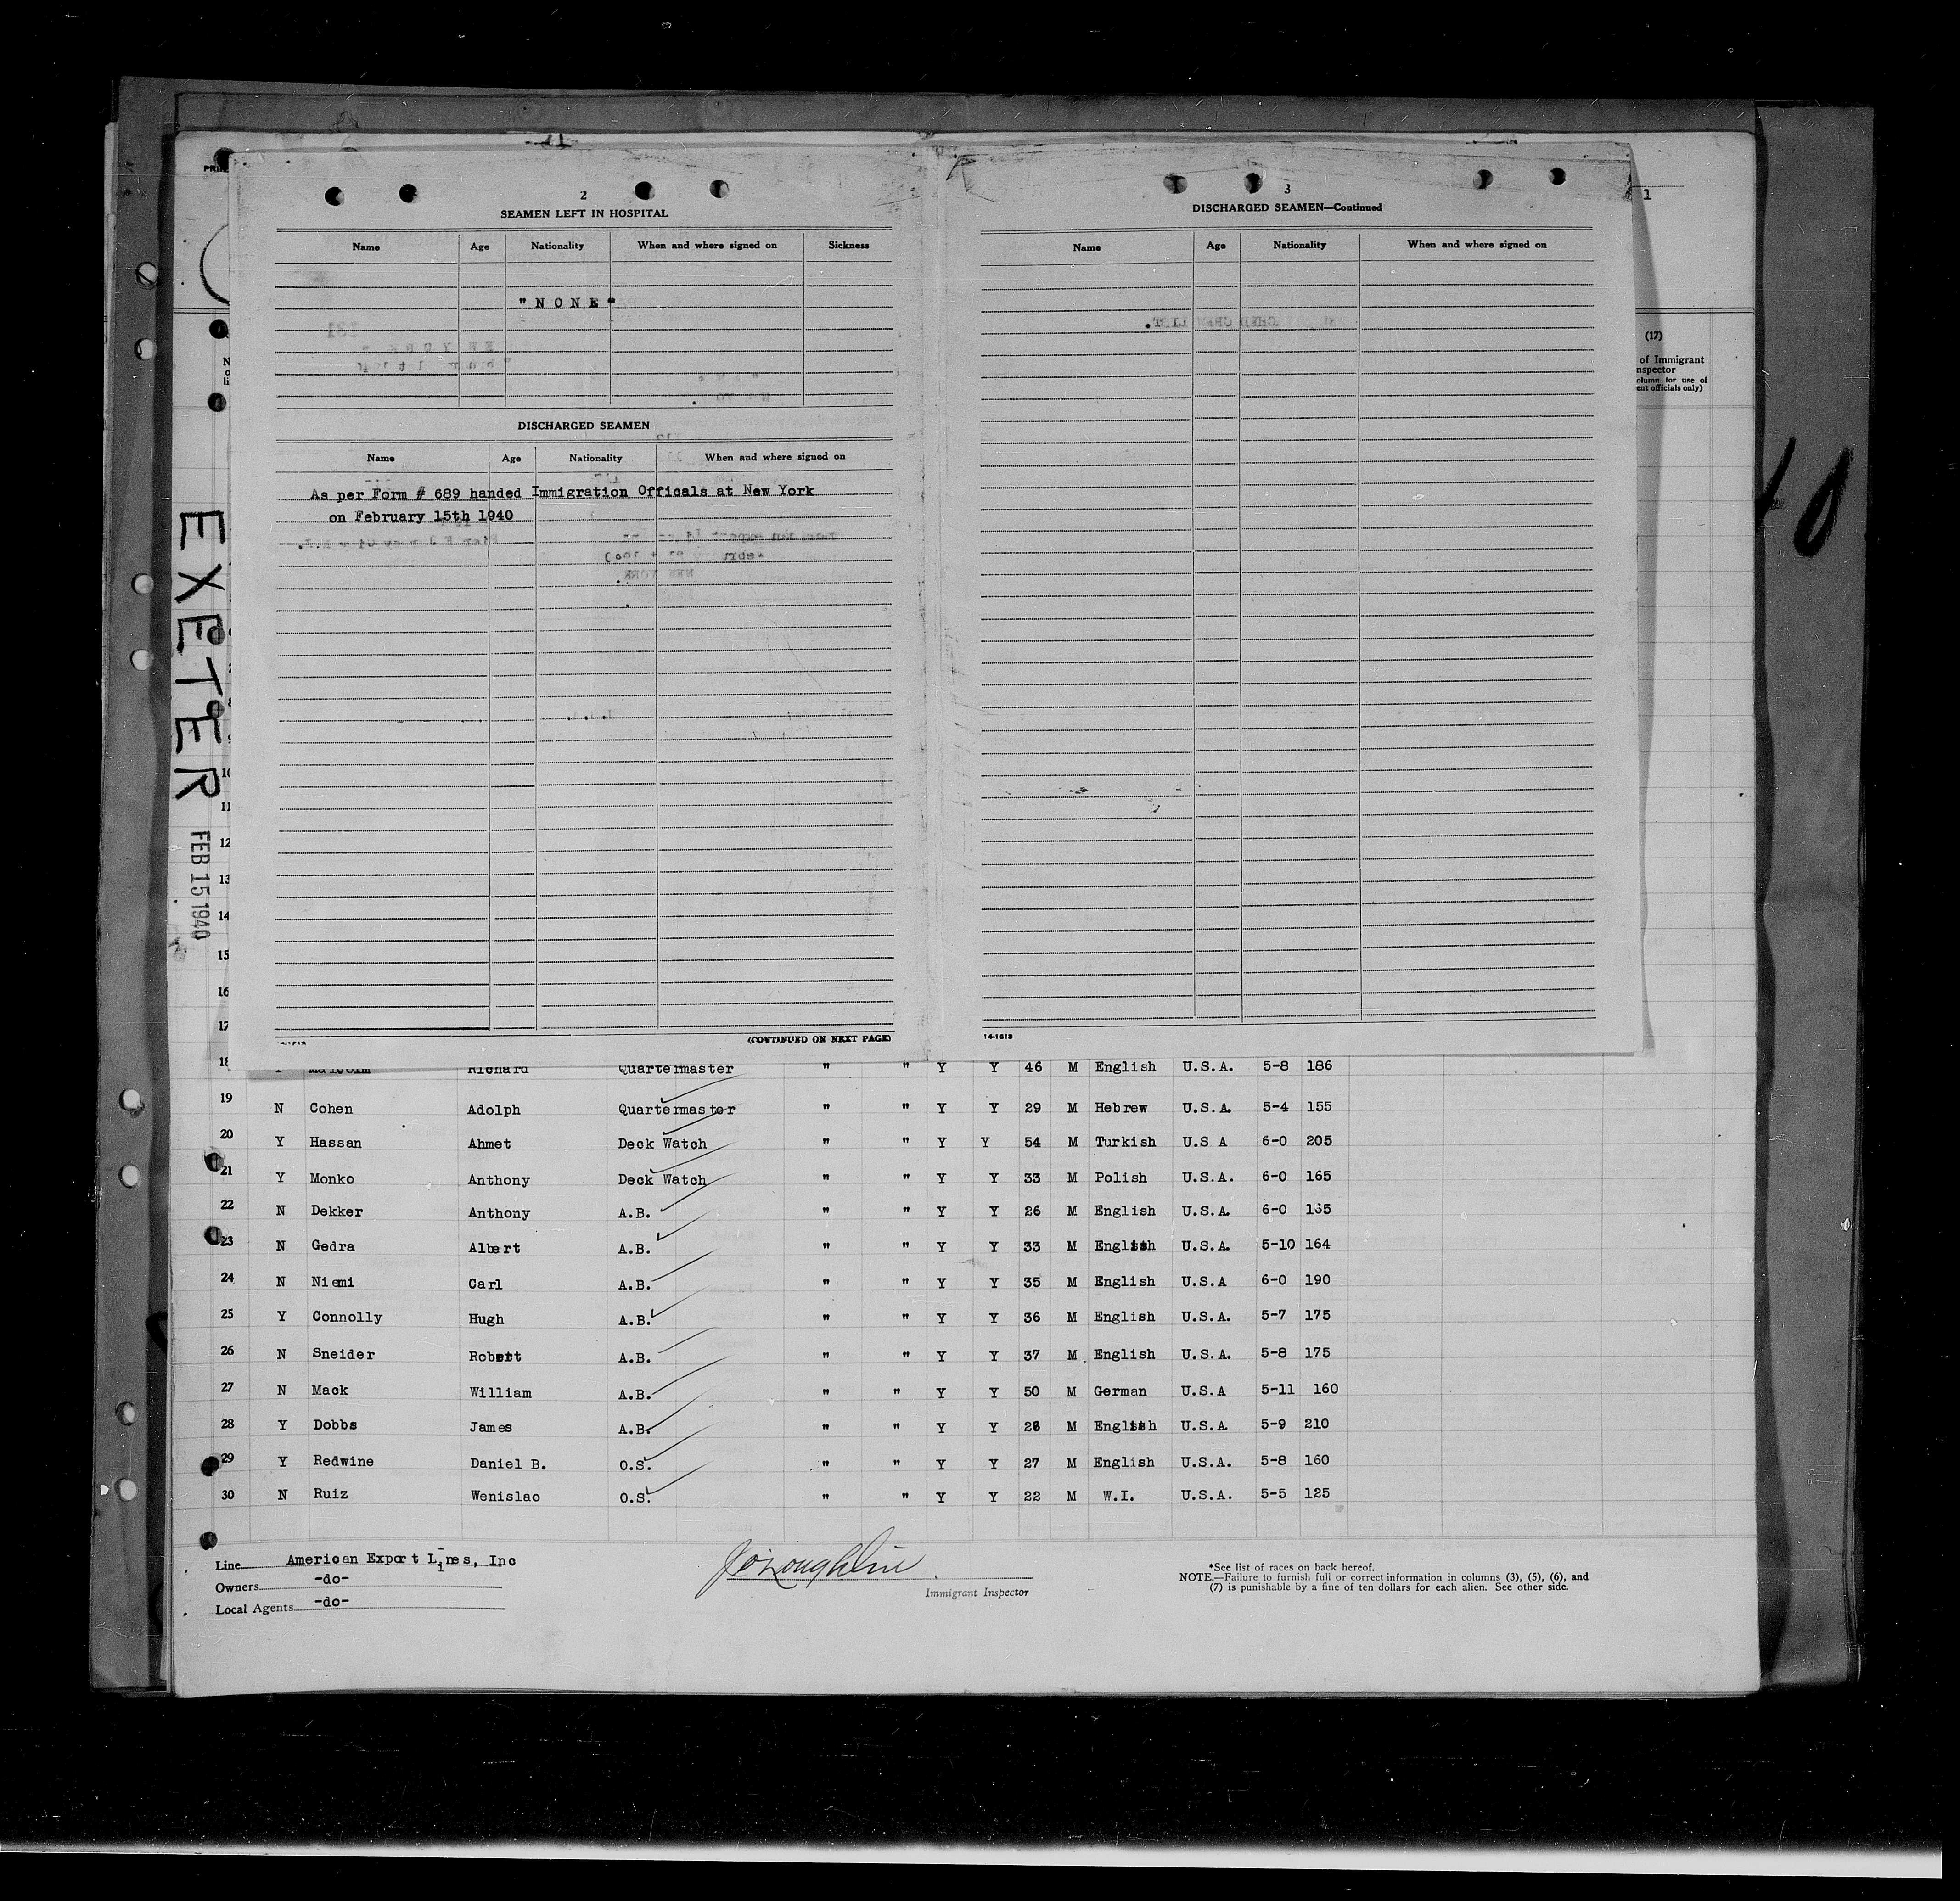 2
SEAMEN LEFT IN HOSPITAL
Name Age Nationality When and where signed on Sickness
"NONE"
DISCHARGED SEAMEN
Name Age Nationality When and where signed on
As per Form # 689 handed Immigration Officals at New York
on February 15th 1940
(CONTINUED ON NEXT PAGE)
3
DISCHARGED SEAMEN—Continued
Name Age Nationality When and where signed on
14-1613
1
(17)
of Immigrant
nspector
olumn for use of
ent officials only)
EXETER
FEB 15 1940
40
10
11
12
13
14
15
16
17
18 Malcolm Richard Quartermaster " " Y Y 46 M English U.S.A. 5-8 186
19 N Cohen Adolph Quartermaster " " Y Y 29 M Hebrew U.S.A. 5-4 155
20 Y Hassan Ahmet Deck Watch " " Y Y 54 M Turkish U.S A 6-0 205
21 Y Monko Anthony Deck Watch " " Y Y 33 M Polish U.S.A. 6-0 165
22 N Dekker Anthony A.B. " " Y Y 26 M English U.S.A. 6-0 165
23 N Gedra Albert A.B. " " Y Y 33 M English U.S.A. 5-10 164
24 N Niemi Carl A.B. " " Y Y 35 M English U.S.A 6-0 190
25 Y Connolly Hugh A.B. " " Y Y 36 M English U.S.A. 5-7 175
26 N Sneider Robert A.B. " " Y Y 37 M English U.S.A. 5-8 175
27 N Mack William A.B. " " Y Y 50 M German U.S.A 5-11 160
28 Y Dobbs James A.B. " " Y Y 26 M English U.S.A 5-9 210
29 Y Redwine Daniel B. O.S. " " Y Y 27 M English U.S.A. 5-8 160
30 N Ruiz Wenislao O.S. " " Y Y 22 M W.I. U.S.A. 5-5 125
Line American Export Lines, Inc
Owners -do-
Local Agents -do-
J O'Loughlin
Immigrant Inspector
*See list of races on back hereof.
NOTE.—Failure to furnish full or correct information in columns (3), (5), (6), and
(7) is punishable by a fine of ten dollars for each alien. See other side.